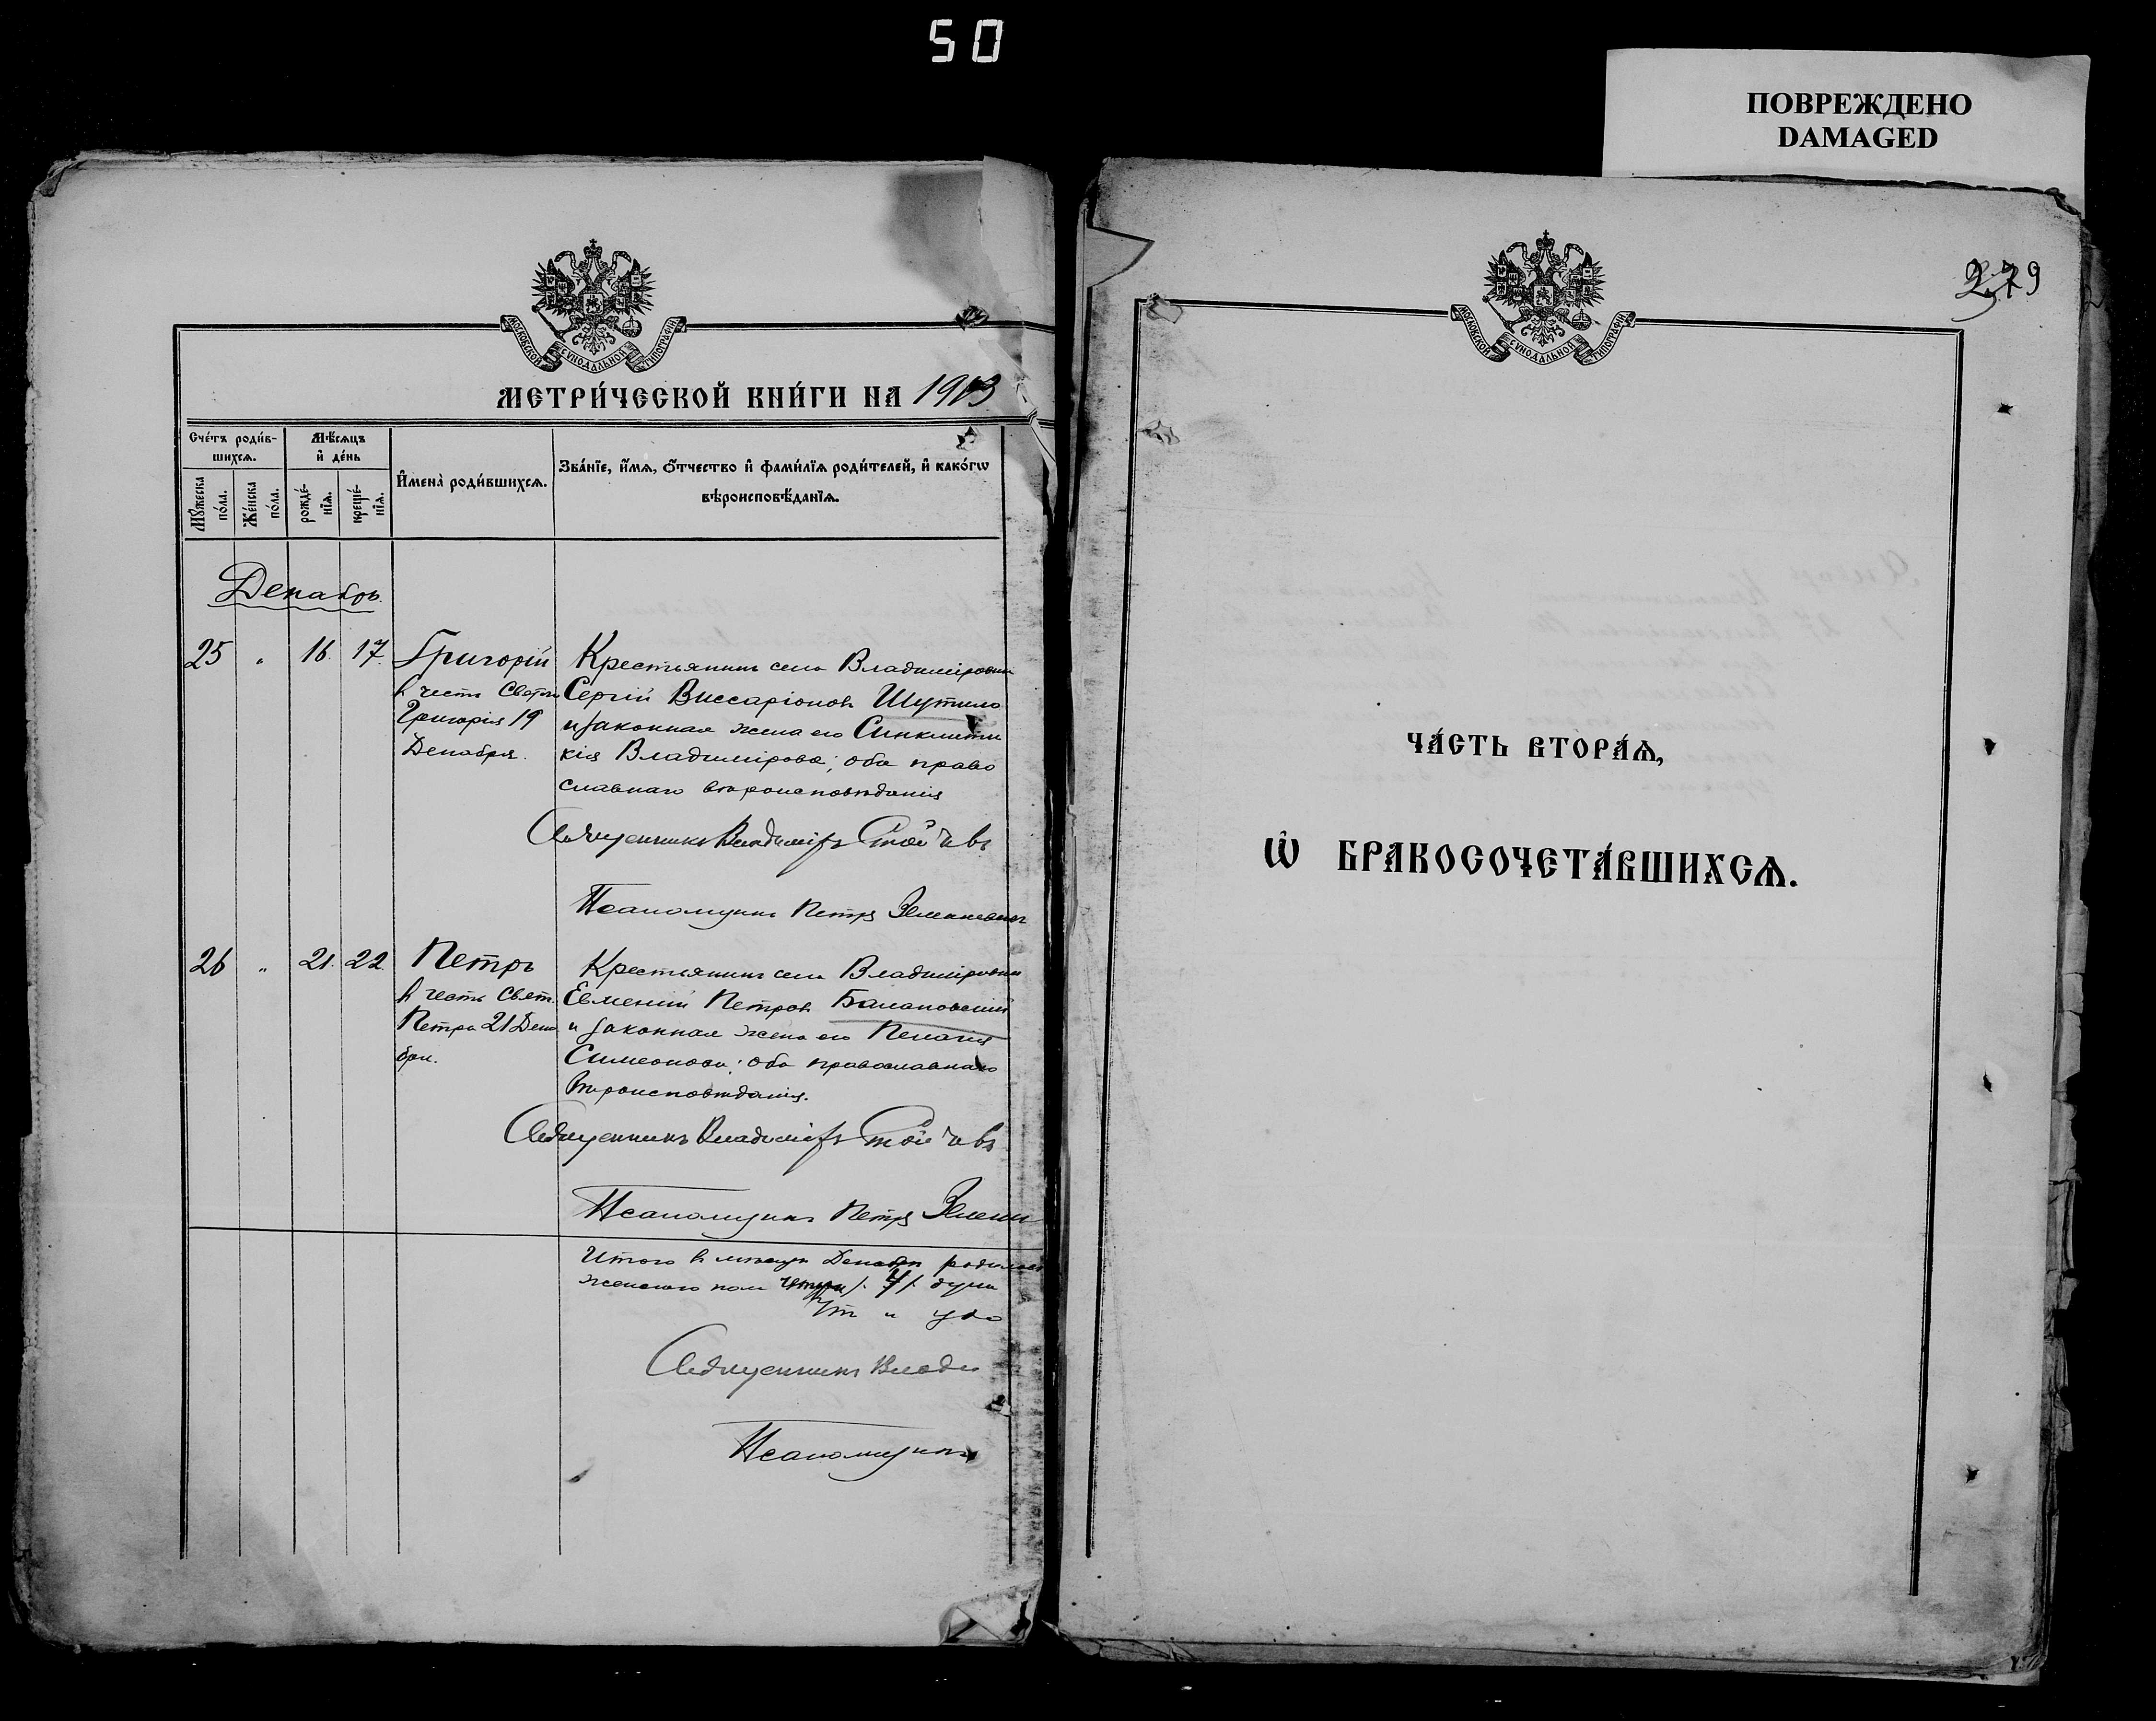 50
ПОВРЕЖДЕНО
DAMAGED
МОСКОВСКОЙ СѴНОДАЛЬНОЙ ТИПОГРАФІИ
МЕТРИ́ЧЕСКОЙ КНИ́ГИ НА 1903
Сче́тъ роди́в-
шихсѧ.
Мѣ́сѧцъ
и҆ де́нь
Мꙋ́жеска по́ла.
Же́нска по́ла.
рожде́-
нїѧ.
креще́-
нїѧ.
И҆мена̀ роди́вшихсѧ.
Зва́нїе, и҆́мѧ, ѻ҆́тчество и҆ фами́лїѧ роди́телей, и҆ како́гѡ
вѣроисповѣ́данїѧ.
Декабрь.
25 " 16. 17. Григорій
в честь Святого
Григорія 19
Декабря.
Крестьянинъ села Владиміровки
Сергій Виссаріоновъ Шутило
и законная жена его Синклити
кія Владимірова; оба право
славнаго вѣроисповѣданія
Священникъ Владиміръ
Псаломщикъ Петръ
26 " 21. 22. Петръ
в честь Свят.
Петра 21 Дека
бря.
Крестьянинъ села Владиміровки
Евменій Петровъ Балановскій
и законная жена его Пелагія
Симеонова; оба православнаго
вѣроисповѣданія.
Священникъ Владиміръ
Псаломщикъ Петръ
Итого в мѣсяцѣ Декабрѣ родилось
женскаго пола четыре /. 4 /. души
Священникъ Влади
Псаломщикъ
279
МОСКОВСКОЙ СѴНОДАЛЬНОЙ ТИПОГРАФІИ
ЧА́СТЬ ВТОРА́Ѧ,
Ѡ҆ БРАКОСОЧЕТА́ВШИХСѦ.